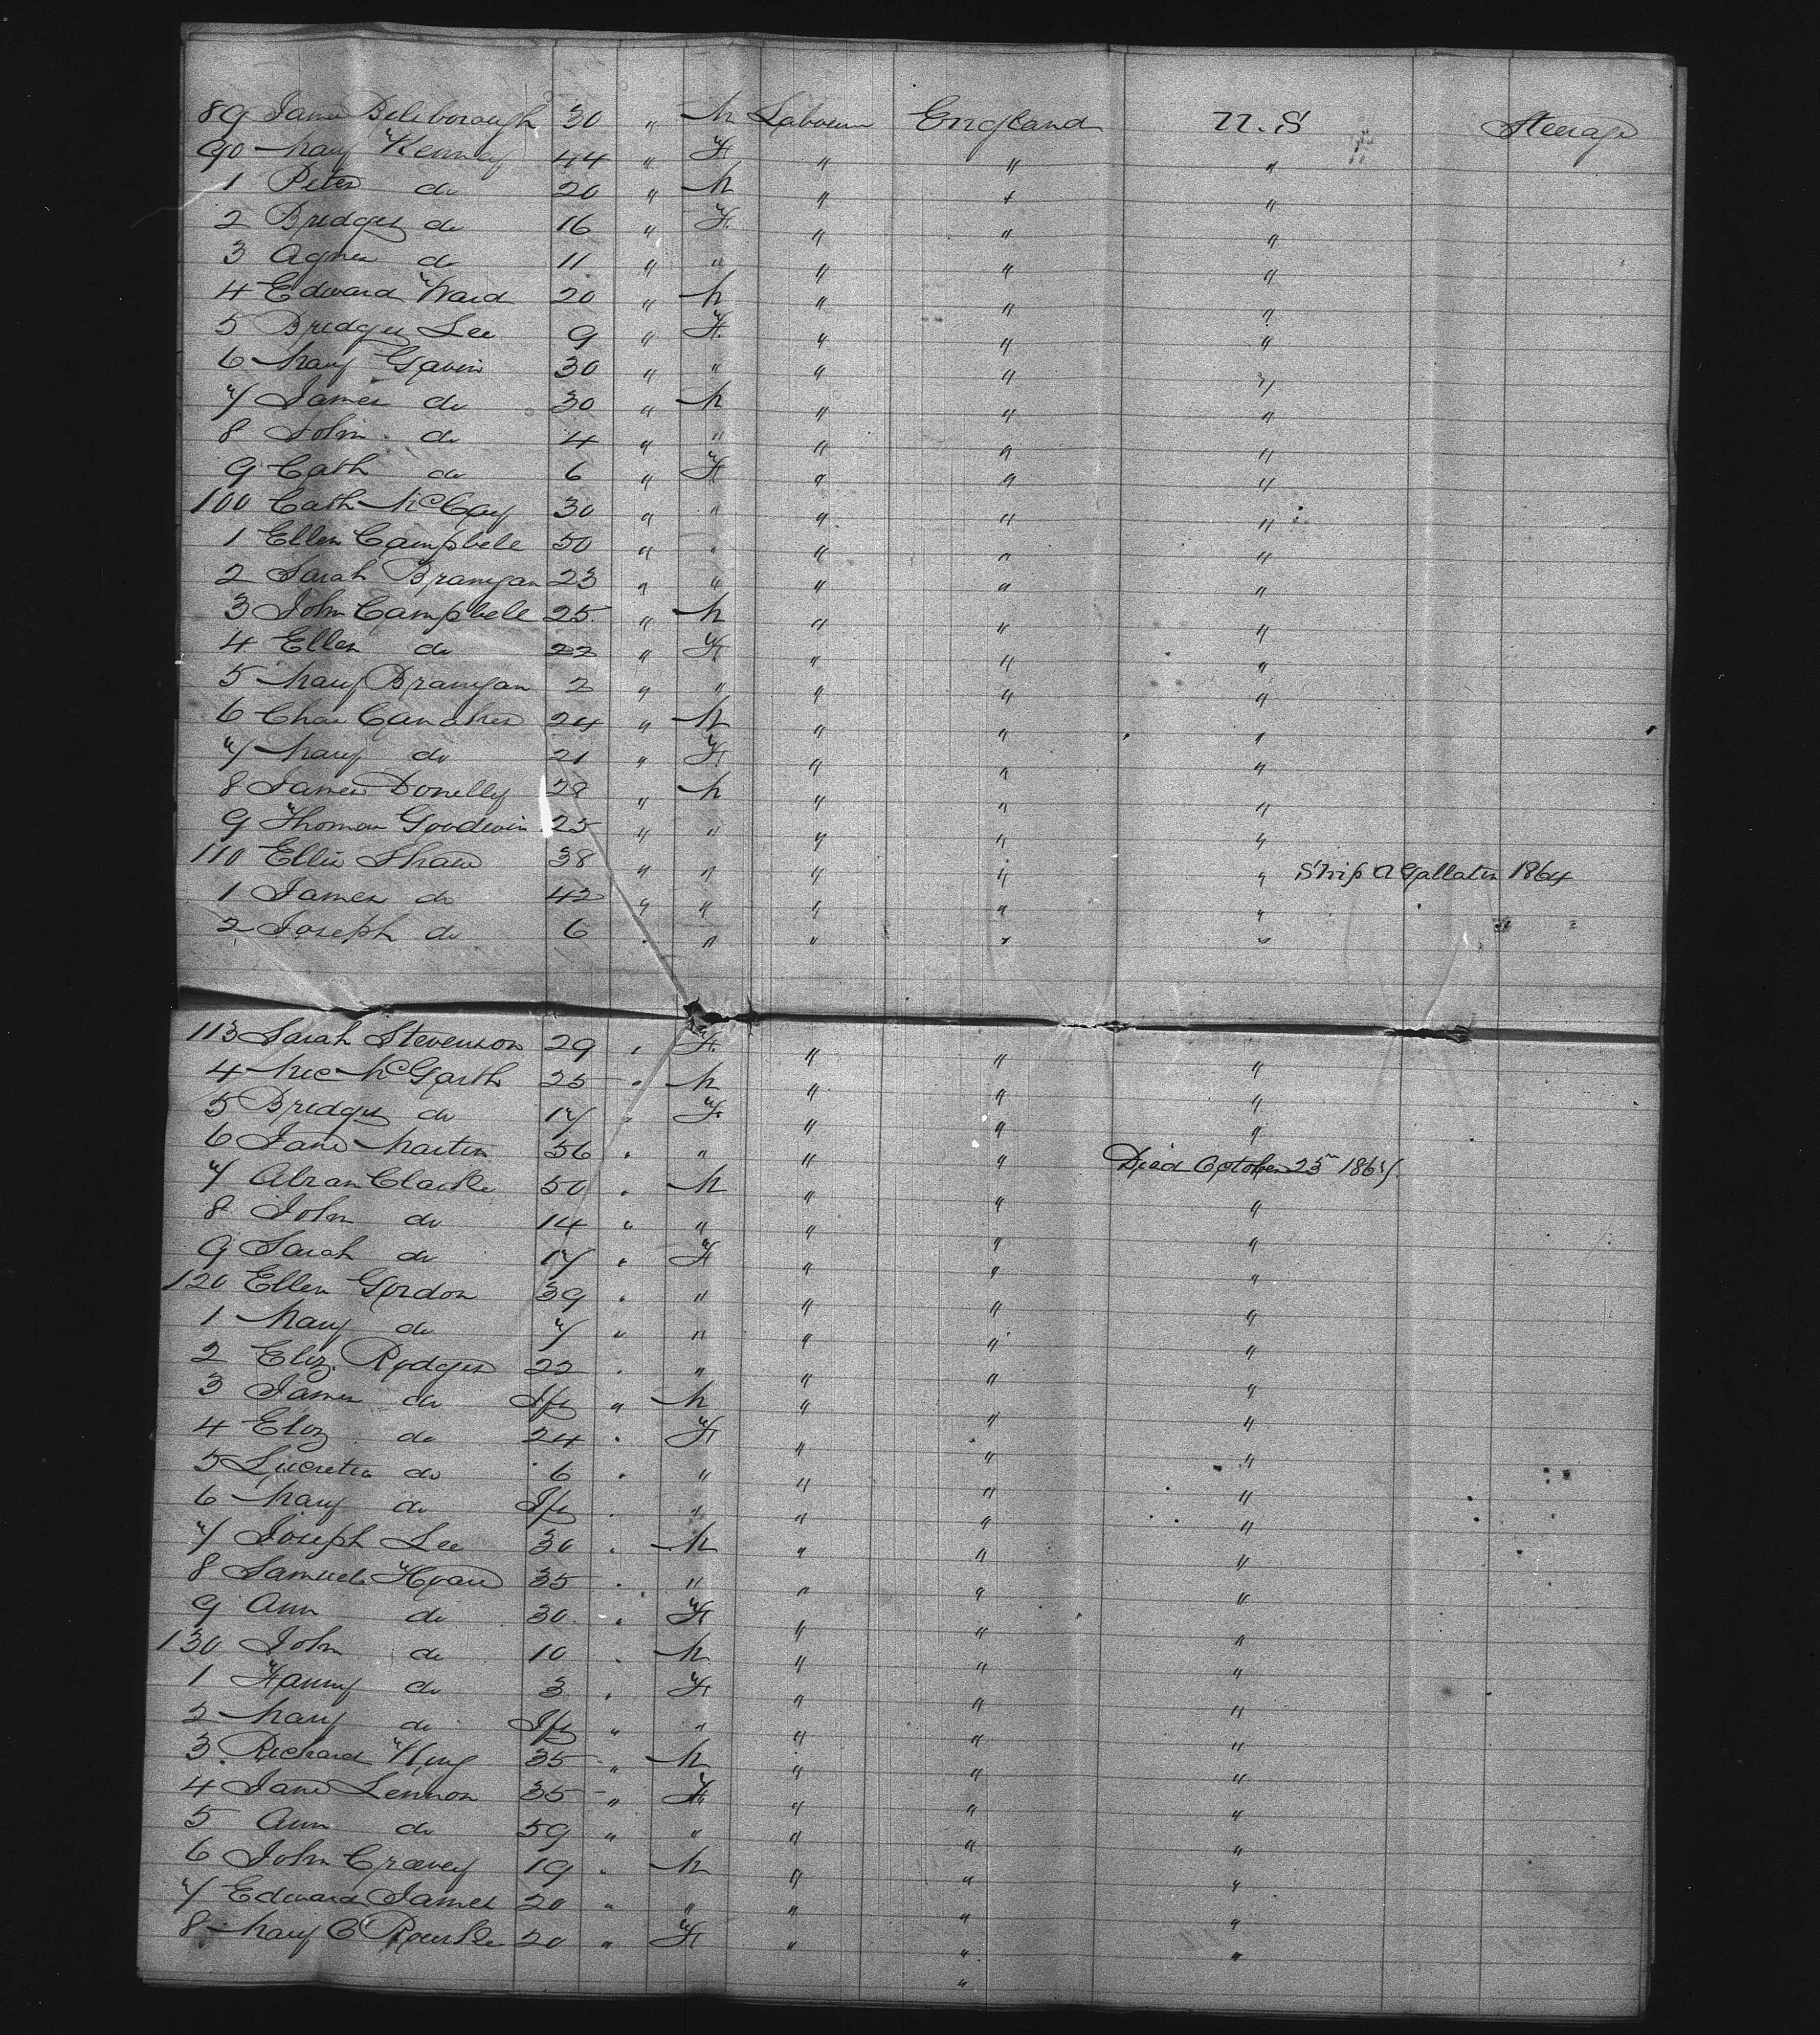 89 James Beleborough 30 " M Labourer England U.S Steerage
90 Mary Kenney 44 " F " " "
1 Peter do 20 " M " " "
2 Bridget do 16 " F " " "
3 Agnes do 11 " " " " "
4 Edward Ward 20 " M " " "
5 Bridget Lee 9 " F " " "
6 Mary Gavin 30 " " " " "
7 James do 30 " M " " "
8 John do 4 " " " " "
9 Cath do 6 " F " " "
100 Cath McCay 30 " " " " "
1 Ellen Campbell 50 " " " " "
2 Sarah Branigan 23 " " " " "
3 John Campbell 25 " M " " "
4 Ellen do 22 " F " " "
5 Mary Branigan 2 " " " " "
6 Chas 24 " M " " "
7 Mary do 21 " F " " "
8 James Donelly 28 " M " " "
9 Thomas Goodwin 25 " " " " "
110 Ellis Shaw 38 " " " " " Ship A Gallatin 1864
1 James do 42 " " " " "
2 Joseph do 6 " " " " "
113 Sarah Stevenson 29 " F " " "
4 Mic McGarth 25 " M " " "
5 Bridget do 17 " F " " "
6 Jane Martin 56 " " " " Died October 25th 1864
7 Abram Clarke 50 " M " " "
8 John do 14 " " " " "
9 Sarah do 17 " F " " "
120 Ellen Gordon 39 " " " " "
1 Mary do 7 " " " " "
2 Eliz. Rodgers 22 " " " " "
3 James do Ift " M " " "
4 Eliz do 24 " F " " "
5 Lucretia do 6 " " " " "
6 Mary do Ift " " " " "
7 Joseph Lee 30 " M " " "
8 Samuel 35 " " " " "
9 Ann do 30 " F " " "
130 John do 10 " M " " "
1 Fanny do 3 " F " " "
2 Mary do Ift " " " " "
3 Richard King 35 " M " " "
4 Jane Lennon 35 " F " " "
5 Ann do 59 " " " " "
6 John Cravey 19 " M " " "
7 Edward James 20 " " " " "
8 Mary O Rourke 20 " F " " "
"